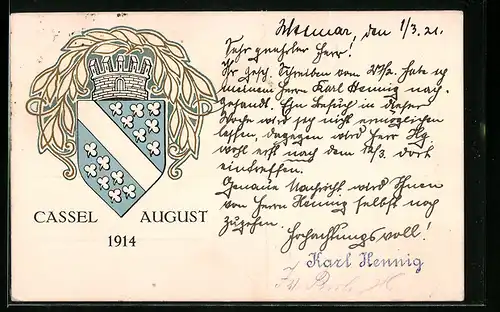 CASSEL AUGUST
1914
Weimar, den 1/3. 21.
Sehr geehrter Herr!
Ihr gesch. Schreiben vom 27/2. habe ich
meinem Herrn Karl Hennig nach-
gesandt. Ein Besuch in dieser
Woche wird sich nicht ermöglichen
lassen, dagegen wird Herr Hg
wohl erst nach dem 10/3. dort
eintreffen.
Genaue Nachricht wird Ihnen
von Herrn Hennig selbst noch
zugehen.
Hochachtungsvoll!
Karl Hennig